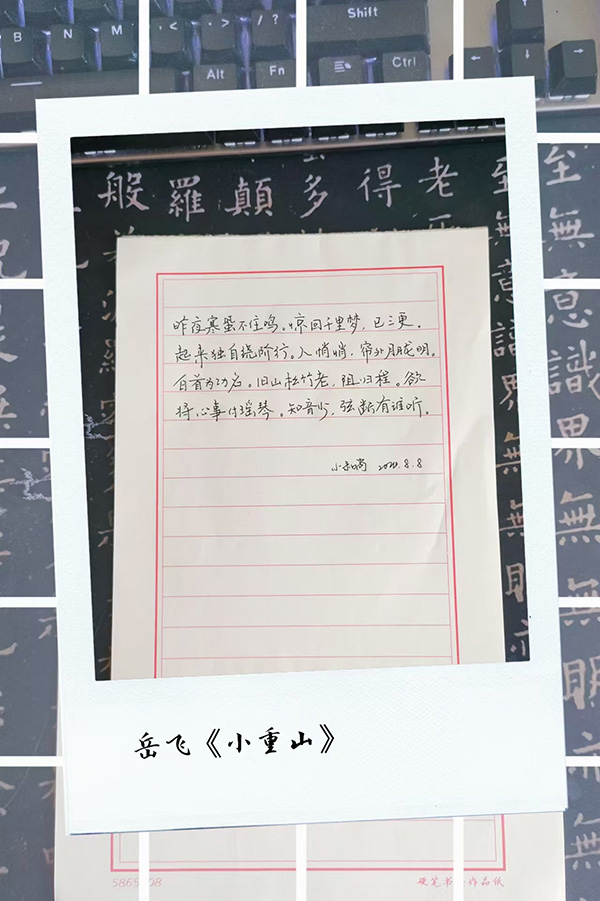 B N M < > ? / Shift
Alt Fn Ctrl
般羅顛多得老至無意識界無無明
昨夜寒蛩不住鸣。惊回千里梦，已三更。
起来独自绕阶行。人悄悄，帘外月胧明。
白首为功名。旧山松竹老，阻归程。欲
将心事付瑶琴。知音少，弦断有谁听。
小和尚 2021.8.8
岳飞《小重山》
至無意識界無
硬笔书 作品纸